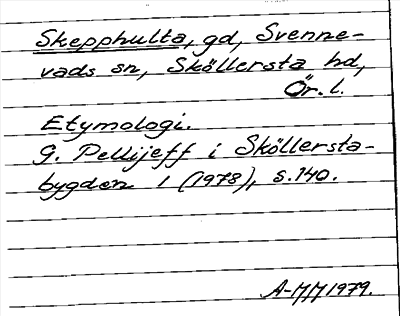 Skepphulta, gd, Svenne-
vads sn, Sköllersta hd,
Ör. l.
Etymologi.
G. Pellijeff i Sköllersta-
bygden 1 (1978), s. 140.
A-MM 1979.